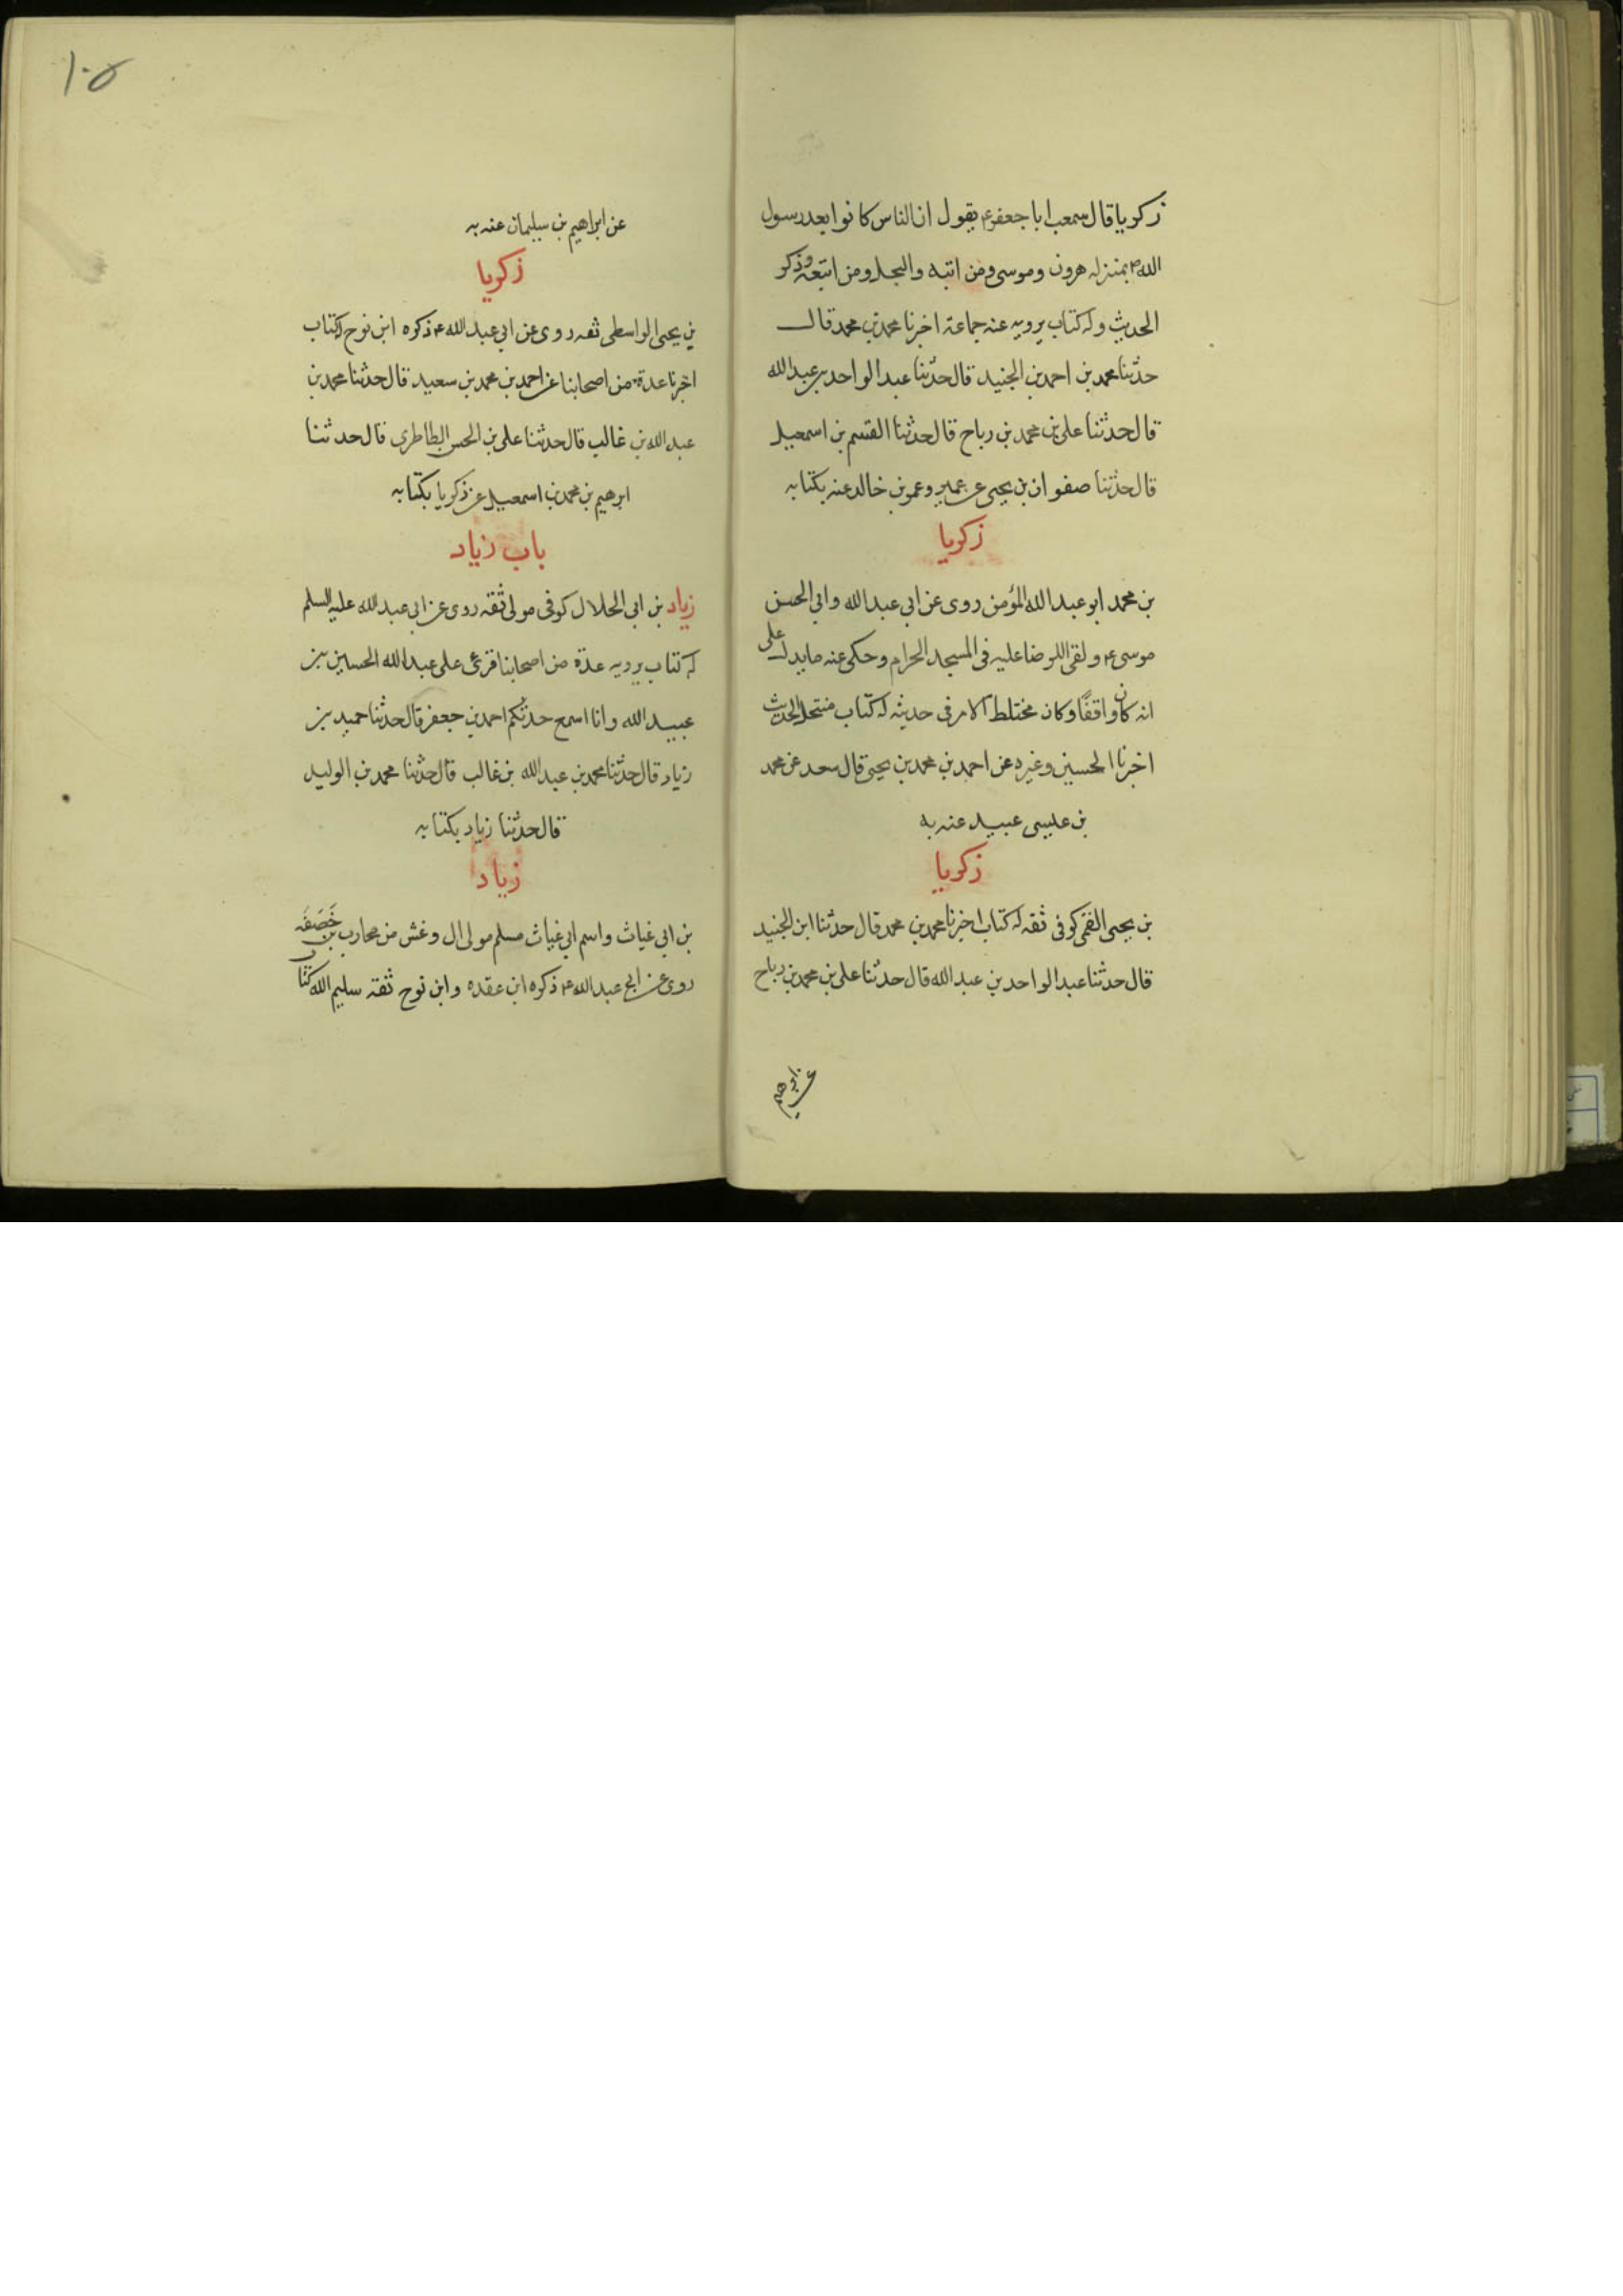 زكريا قال سمعت ابا جعفر ع يقول ان الناس كانوا بعد رسول
الله ص بمنزله هرون وموسى ومن اتبه والعجل ومن اتبعه وذكر
الحديث وله كتاب يرويه عنه جماعة اخبرنا محمد بن محمد قال
حدثنا محمد بن احمد بن الجنيد قال حدثنا عبد الواحد بن عبد الله
قال حدثنا على بن محمد بن رباح قال حدثنا القسم بن اسمعيل
قال حدثنا صفوان بن يحيى عن عمير وعمر بن خالد عنه بكتابه
زكريا
بن محمد ابو عبد الله المؤمن روى عن ابي عبد الله وابي الحسن
موسى ع ولقى الرضا عليه فى المسجد الحرام وحكى عنه ما يدل على
انه كان واقفًا وكان مختلط الامر فى حديثه له كتاب منتحل الحديث
اخبرنا الحسين وغيره عن احمد بن محمد بن يحيى قال سعد عن محمد
بن عليسى عبيد عنه به
زكريا
بن يحيى الفقمى كوفى ثقه له كتاب اخبرنا محمد بن محمد قال حدثنا ابن الجنيد
قال حدثنا عبد الواحد بن عبد الله قال حدثنا على بن محمد بن رباح
عن ابراهيم
١٠٥
عن ابراهيم بن سليمان عنه به
زكريا
بن يحيى الواسطى ثقه روى عن ابي عبد الله ع ذكره ابن نوح له كتاب
اخبرنا عدة من اصحابنا عن احمد بن محمد بن سعيد قال حدثنا محمد بن
عبد الله بن غالب قال حدثنا على بن الحسن الطاطرى قال حدثنا
ابرهيم بن محمد بن اسمعيل عن زكريا بكتابه
باب زياد
زياد بن ابى الحلال كوفى مولى ثقه روى عن ابى عبد الله عليه السلم
له كتاب يرويه عدة من اصحابنا قرئ على عبد الله الحسين بن
عبيد الله وانا اسمع حدثكم احمد بن جعفر قال حدثنا حميد بن
زياد قال حدثنا محمد بن عبد الله بن غالب قال حدثنا محمد بن الوليد
قال حدثنا زياد بكتابه
زياد
بن ابي غياث واسم ابي غياث مسلم مولى ال وغش من محارب بن خَصَفَه
روى عن ابي عبد الله ع ذكره ابن عقده وابن نوح ثقه سليم الله كتا